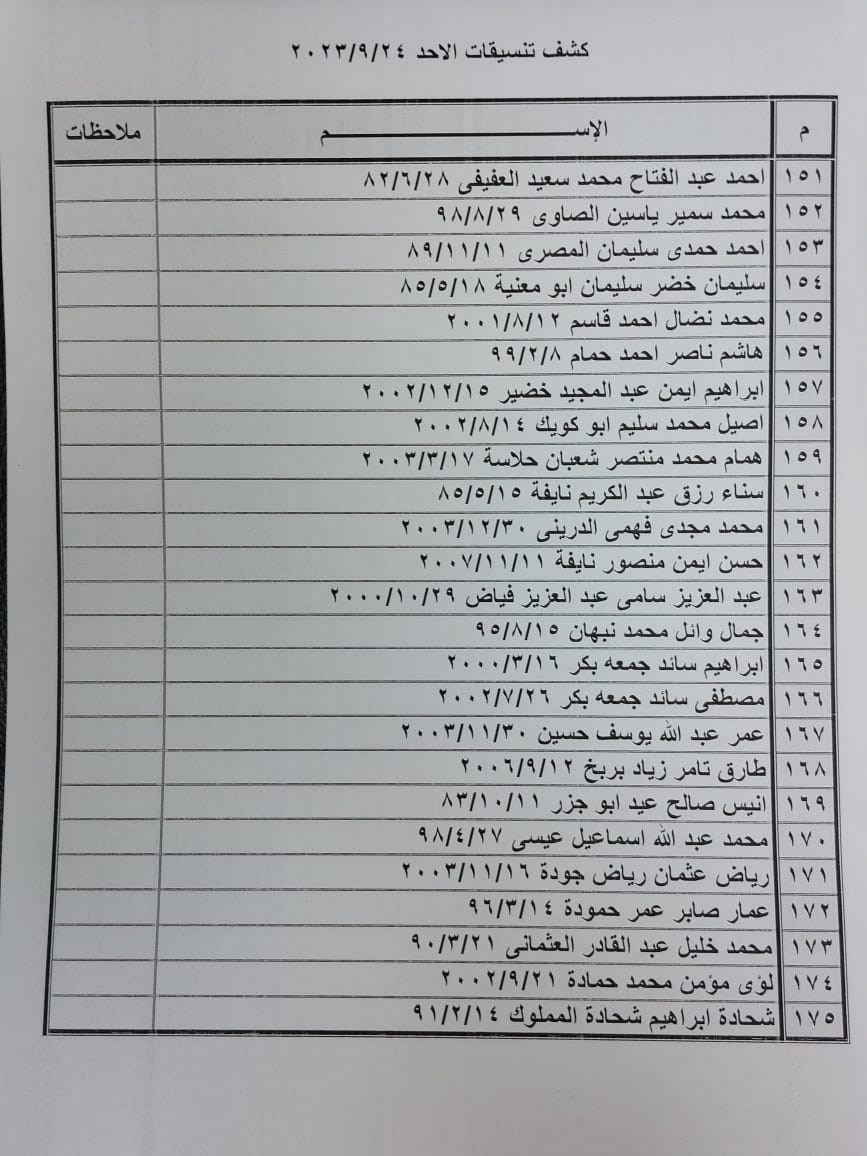 كشف تنسيقات الاحد ٢٠٢٣/٩/٢٤
م الإســـــــــم ملاحظات
١٥١ احمد عبد الفتاح محمد سعيد العفيفى ٨٢/٦/٢٨
١٥٢ محمد سمير ياسين الصاوى ٩٨/٨/٢٩
١٥٣ احمد حمدى سليمان المصرى ٨٩/١١/١١
١٥٤ سليمان خضر سليمان ابو معنية ٨٥/٥/١٨
١٥٥ محمد نضال احمد قاسم ٢٠٠١/٨/١٢
١٥٦ هاشم ناصر احمد حمام ٩٩/٢/٨
١٥٧ ابراهيم ايمن عبد المجيد خضير ٢٠٠٢/١٢/١٥
١٥٨ اصيل محمد سليم ابو كويك ٢٠٠٢/٨/١٤
١٥٩ همام محمد منتصر شعبان حلاسة ٢٠٠٣/٣/١٧
١٦٠ سناء رزق عبد الكريم نايفة ٨٥/٥/١٥
١٦١ محمد مجدى فهمى الدرينى ٢٠٠٣/١٢/٣٠
١٦٢ حسن ايمن منصور نايفة ٢٠٠٧/١١/١١
١٦٣ عبد العزيز سامى عبد العزيز فياض ٢٠٠٠/١٠/٢٩
١٦٤ جمال وائل محمد نبهان ٩٥/٨/١٥
١٦٥ ابراهيم سائد جمعه بكر ٢٠٠٠/٣/١٦
١٦٦ مصطفى سائد جمعه بكر ٢٠٠٢/٧/٢٦
١٦٧ عمر عبد الله يوسف حسين ٢٠٠٣/١١/٣٠
١٦٨ طارق تامر زياد بربخ ٢٠٠٦/٩/١٢
١٦٩ انيس صالح عيد ابو جزر ٨٣/١٠/١١
١٧٠ محمد عبد الله اسماعيل عيسى ٩٨/٤/٢٧
١٧١ رياض عثمان رياض جودة ٢٠٠٣/١١/١٦
١٧٢ عمار صابر عمر حمودة ٩٦/٣/١٤
١٧٣ محمد خليل عبد القادر العثمانى ٩٠/٣/٢١
١٧٤ لؤى مؤمن محمد حمادة ٢٠٠٢/٩/٢١
١٧٥ شحادة ابراهيم شحادة المملوك ٩١/٢/١٤